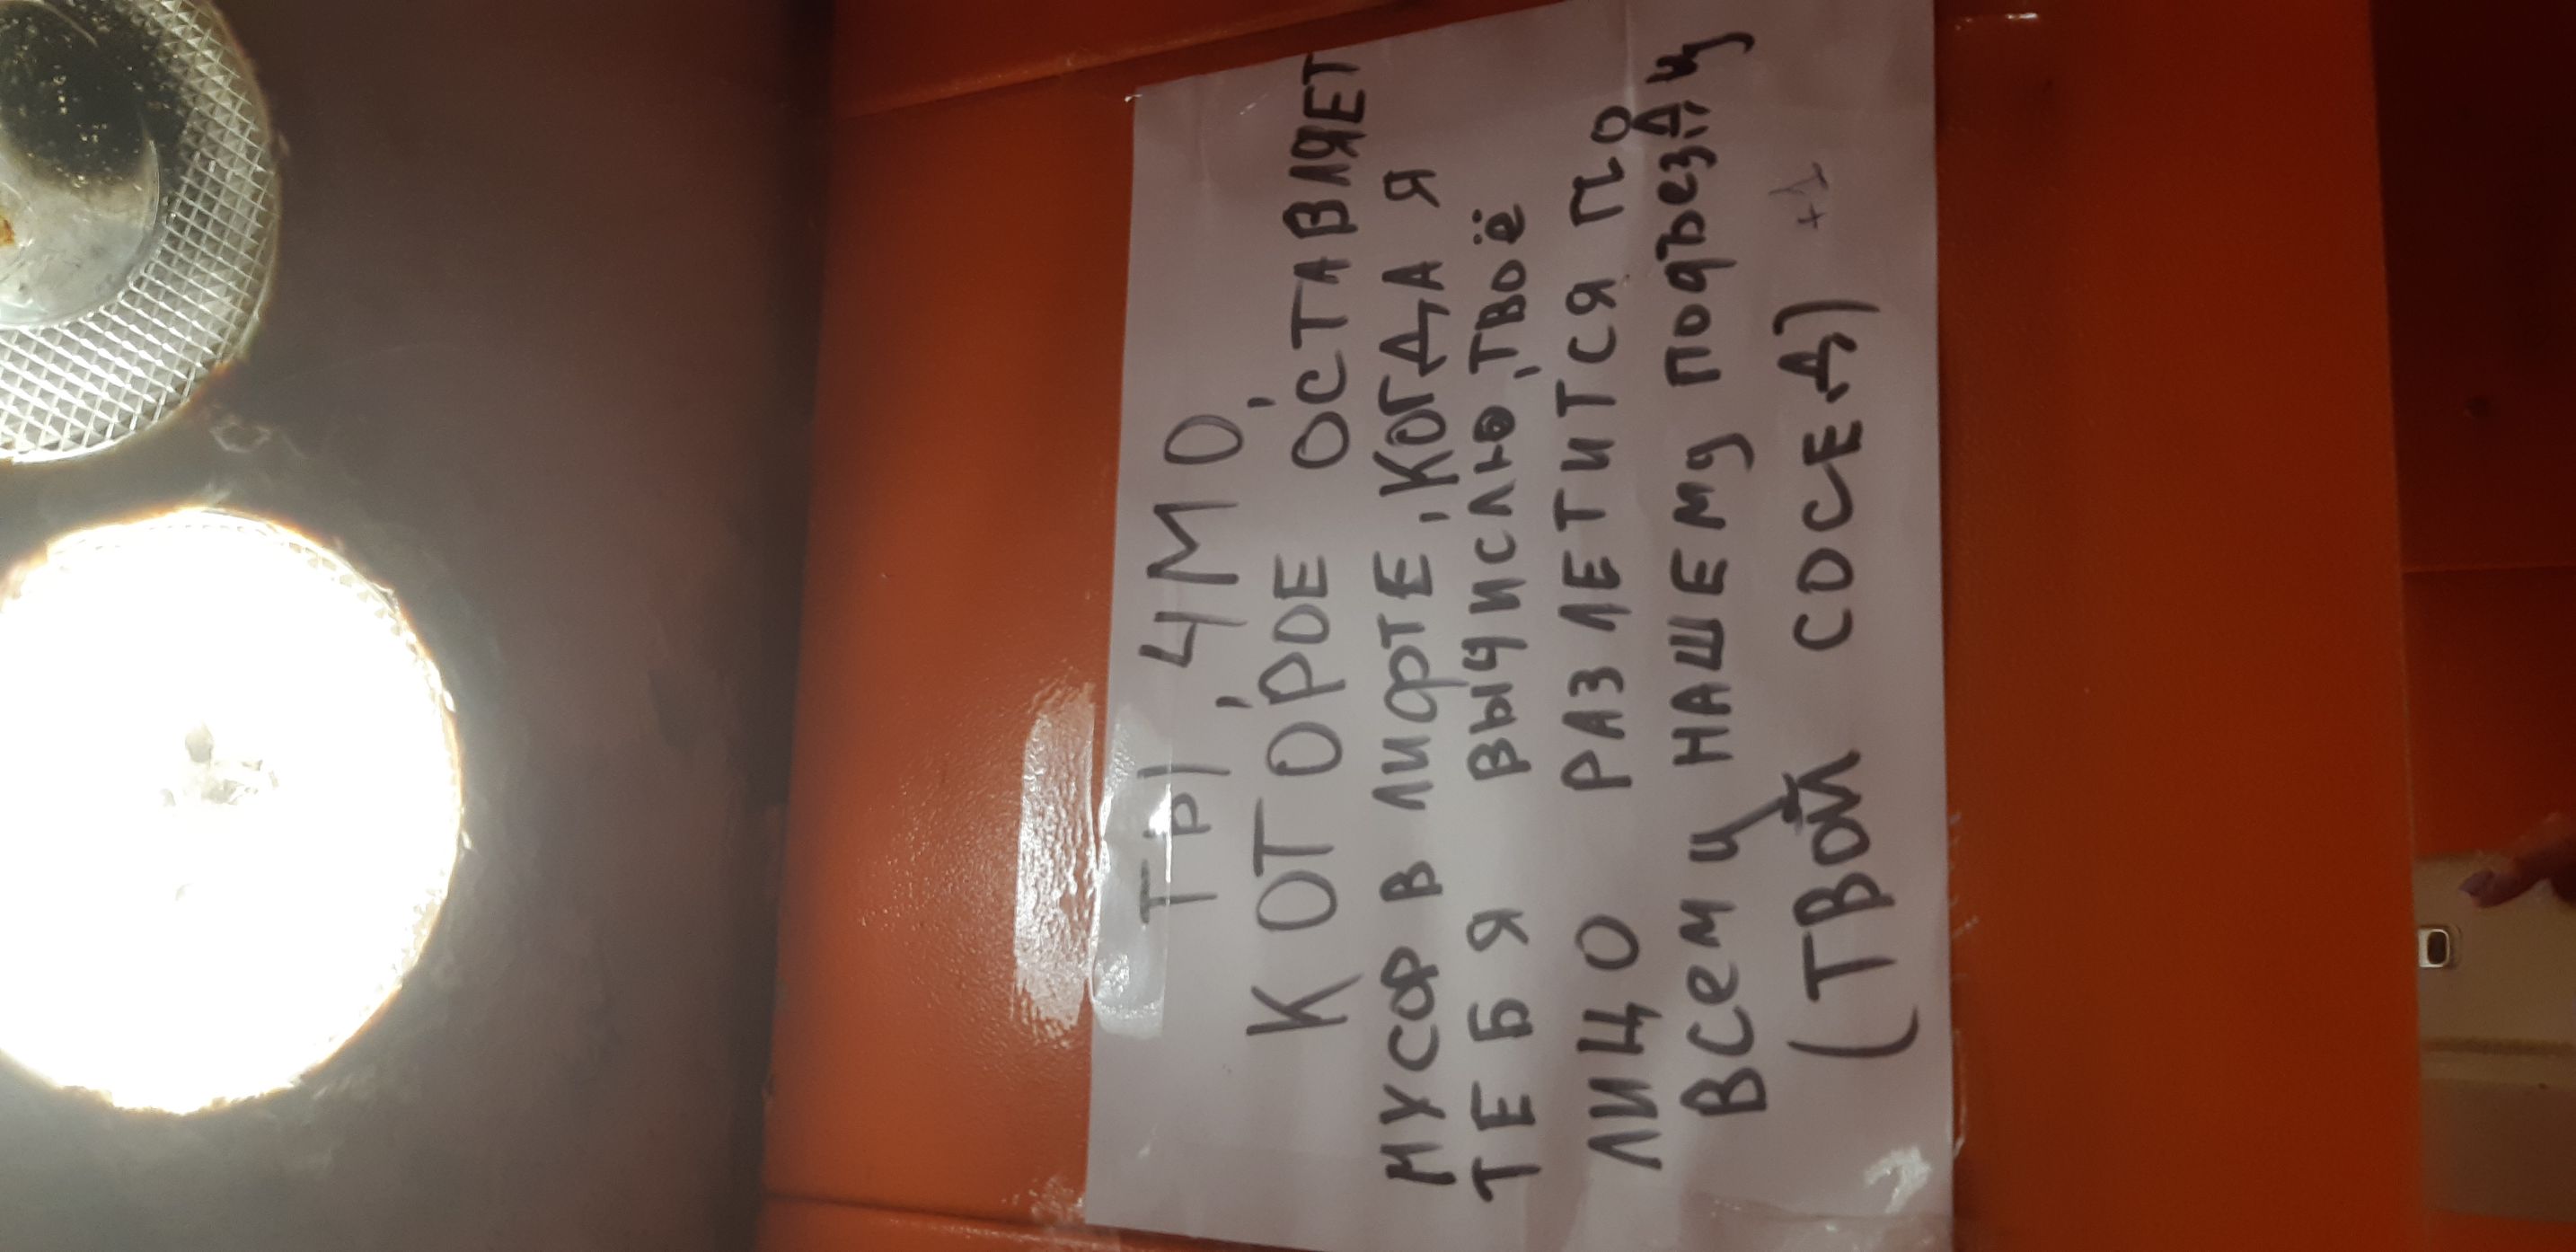 ТЫ, ЧМО,
КОТОРОЕ ОСТАВЛЯЕТ
МУСОР В ЛИФТЕ, КОГДА Я
ТЕБЯ ВЫЧИСЛЮ, ТВОЁ
ЛИЦО РАЗЛЕТИТСЯ ПО
ВСЕМУ НАШЕМУ ПОДЪЕЗДУ
(ТВОЙ СОСЕД) +1